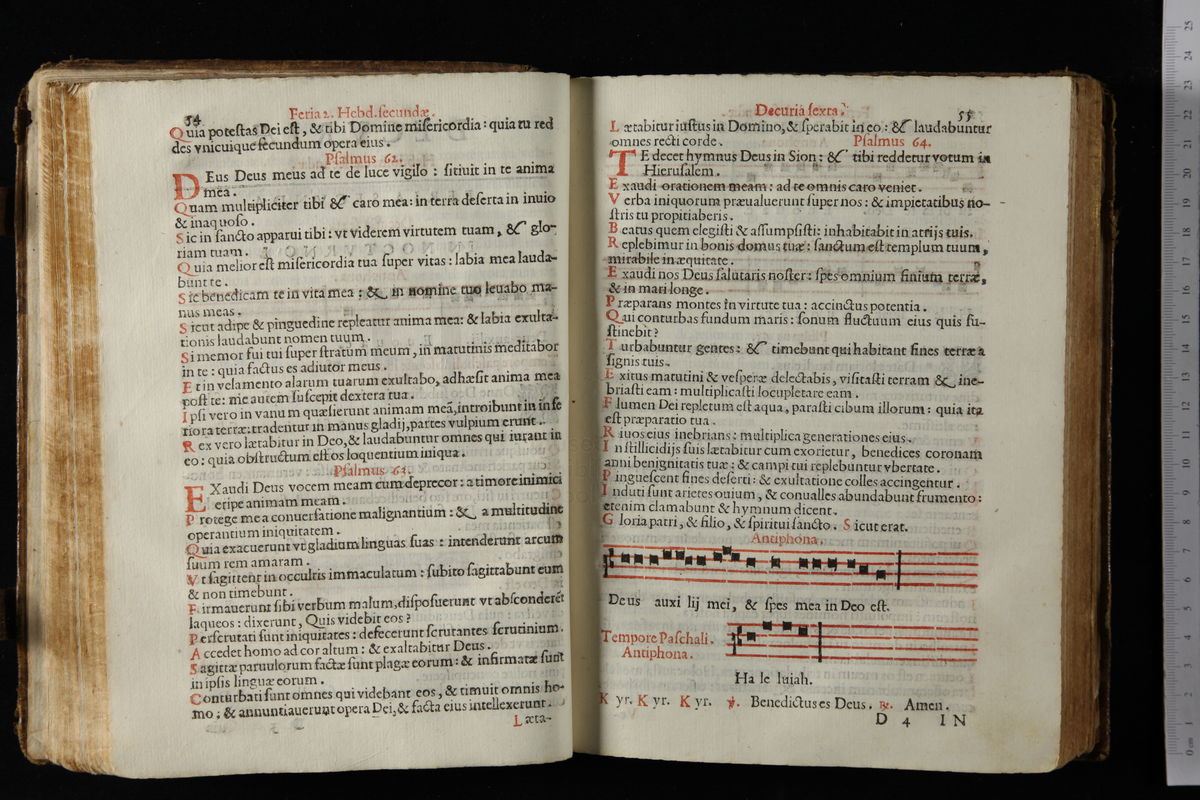 54
Feria 2. Hebd. secundæ.
Quia potestas Dei est, & tibi Domine misericordia: quia tu red
des vnicuique secundum opera eius.
Psalmus 62.
DEus Deus meus ad te de luce vigilo: sitiuit in te anima
mea.
Quam multipliciter tibi & caro mea: in terra deserta in inuio
& inaquoso.
Sic in sancto apparui tibi: vt viderem virtutem tuam, & glo-
riam tuam.
Quia melior est misericordia tua super vitas: labia mea lauda-
bunt te.
Sic benedicam te in vita mea: & in nomine tuo leuabo ma-
nus meas.
Sicut adipe & pinguedine repleatur anima mea: & labia exulta-
tionis laudabunt nomen tuum.
Si memor fui tui super stratum meum, in matutinis meditabor
in te: quia factus es adiutor meus.
Et in velamento alarum tuarum exultabo, adhæsit anima mea
post te: me autem suscepit dextera tua.
Ipsi vero in vanum quæsierunt animam meā, introibunt in infe
riora terræ: tradentur in manus gladij, partes vulpium erunt.
Rex vero lætabitur in Deo, & laudabuntur omnes qui iurant in
eo: quia obstructum est os loquentium iniqua.
Psalmus 63.
EXaudi Deus vocem meam cum deprecor: a timore inimici
eripe animam meam.
Protege me a conuersatione malignantium: & a multitudine
operantium iniquitatem.
Quia exacuerunt vt gladium linguas suas: intenderunt arcum
suum rem amaram.
Vt sagittent in occultis immaculatum: subito sagittabunt eum
& non timebunt.
Firmauerunt sibi verbum malum, disposuerunt vt absconderēt
laqueos: dixerunt, Quis videbit eos?
Perscrutati sunt iniquitates: defecerunt scrutantes scrutinium.
Accedet homo ad cor altum: & exaltabitur Deus.
Sagittæ paruulorum factæ sunt plagæ eorum: & infirmatæ sunt
in ipsis linguæ eorum.
Conturbati sunt omnes qui videbant eos, & timuit omnis ho-
mo: & annuntiauerunt opera Dei, & facta eius intellexerunt.
Læta-
Decuria sexta.
55
Lætabitur iustus in Domino, & sperabit in eo: & laudabuntur
omnes recti corde. Psalmus 64.
TE decet hymnus Deus in Sion: & tibi reddetur votum in
Hierusalem.
Exaudi orationem meam: ad te omnis caro veniet.
Verba iniquorum præualuerunt super nos: & impietatibus no-
stris tu propitiaberis.
Beatus quem elegisti & assumpsisti: inhabitabit in atrijs tuis.
Replebimur in bonis domus tuæ: sanctum est templum tuum,
mirabile in æquitate.
Exaudi nos Deus salutaris noster: spes omnium finium terræ,
& in mari longe.
Præparans montes in virtute tua: accinctus potentia.
Qui conturbas fundum maris: sonum fluctuum eius quis su-
stinebit?
Turbabuntur gentes: & timebunt qui habitant fines terræ a
signis tuis.
Exitus matutini & vesperæ delectabis, visitasti terram & ine-
briasti eam: multiplicasti locupletare eam.
Flumen Dei repletum est aqua, parasti cibum illorum: quia ita
est præparatio tua.
Riuos eius inebrians: multiplica generationes eius.
In stillicidijs suis lætabitur cum exorietur, benedices coronam
anni benignitatis tuæ: & campi tui replebuntur vbertate.
Pinguescent fines deserti: & exultatione colles accingentur.
Induti sunt arietes ouium, & conualles abundabunt frumento:
etenim clamabunt & hymnum dicent.
Gloria patri, & filio, & spiritui sancto. Sicut erat.
Antiphona.
Deus auxi lij mei, & spes mea in Deo est.
Tempore Paschali.
Antiphona.
Ha le luiah.
Kyr. Kyr. Kyr. ℣. Benedictus es Deus. ℟. Amen.
D 4 IN